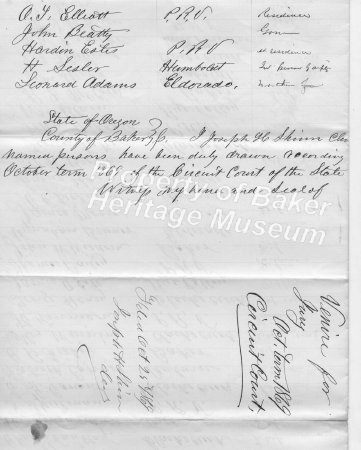 O. J. Elliott P.R.V. Residence
John Beatty Gone
Hardin Estes P.R.V at residence
H Sesler Humboldt In person
Leonard Adams Eldorado.
State of Oregon
County of Baker I Joseph H Shinn Cler
named persons have been duly drawn according
October term 1869 of the Circuit Court of the State
Witness my hand and Seal of
Property of Baker
Heritage Museum
Venire for
Jury
Oct. Term 1869
Circuit Court,
Filed Oct 2 1869
Joseph H Shinn
Clerk